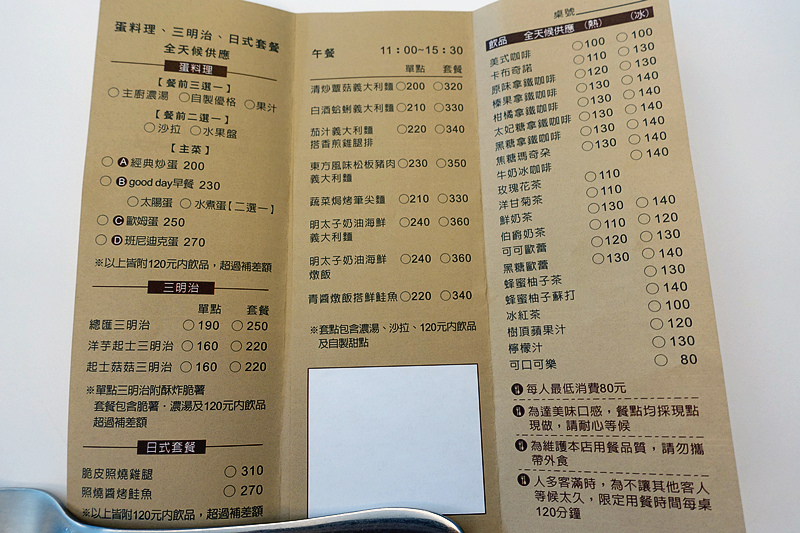 蛋料理、三明治、日式套餐
全天候供應
蛋料理
【餐前三選一】
○主廚濃湯 ○自製優格 ○果汁
【餐前二選一】
○沙拉 ○水果盤
【主菜】
○ A經典炒蛋 200
○ B good day早餐 230
○太陽蛋 ○水煮蛋【二選一】
○ C歐姆蛋 250
○ D班尼迪克蛋 270
※以上皆附120元內飲品，超過補差額
三明治
單點 套餐
總匯三明治 ○190 ○250
洋芋起士三明治 ○160 ○220
起士菇菇三明治 ○160 ○220
※單點三明治附酥炸脆薯
套餐包含脆薯、濃湯及120元內飲品
超過補差額
日式套餐
脆皮照燒雞腿 ○310
照燒醬烤鮭魚 ○270
※以上皆附120元內飲品，超過補差額
午餐 11：00~15：30
單點 套餐
清炒蕈菇義大利麵○200 ○320
白酒蛤蜊義大利麵○210 ○330
茄汁義大利麵 ○220 ○340
搭香煎雞腿排
東方風味松板豬肉○230 ○350
義大利麵
蔬菜焗烤筆尖麵 ○210 ○330
明太子奶油海鮮 ○240 ○360
義大利麵
明太子奶油海鮮 ○240 ○360
燉飯
青醬燉飯搭鮮鮭魚○220 ○340
※套點包含濃湯、沙拉、120元內飲品
及自製甜點
桌號
飲品 全天候供應 (熱) (冰)
美式咖啡 ○100 ○100
卡布奇諾 ○110 ○130
原味拿鐵咖啡 ○120 ○130
榛果拿鐵咖啡 ○130 ○140
柑橘拿鐵咖啡 ○130 ○140
太妃糖拿鐵咖啡 ○130 ○140
黑糖拿鐵咖啡 ○130 ○140
焦糖瑪奇朵 ○130 ○140
牛奶冰咖啡 ○140
玫瑰花茶 ○110
洋甘菊茶 ○110
鮮奶茶 ○130 ○140
伯爵奶茶 ○110 ○120
可可歐蕾 ○120 ○130
黑糖歐蕾 ○130 ○140
蜂蜜柚子茶 ○130
蜂蜜柚子蘇打 ○140
冰紅茶 ○100
樹頂蘋果汁 ○120
檸檬汁 ○130
可口可樂 ○ 80
每人最低消費80元
為達美味口感，餐點均採現點
現做，請耐心等候
為維護本店用餐品質，請勿攜
帶外食
人多客滿時，為不讓其他客人
等候太久，限定用餐時間每桌
120分鐘